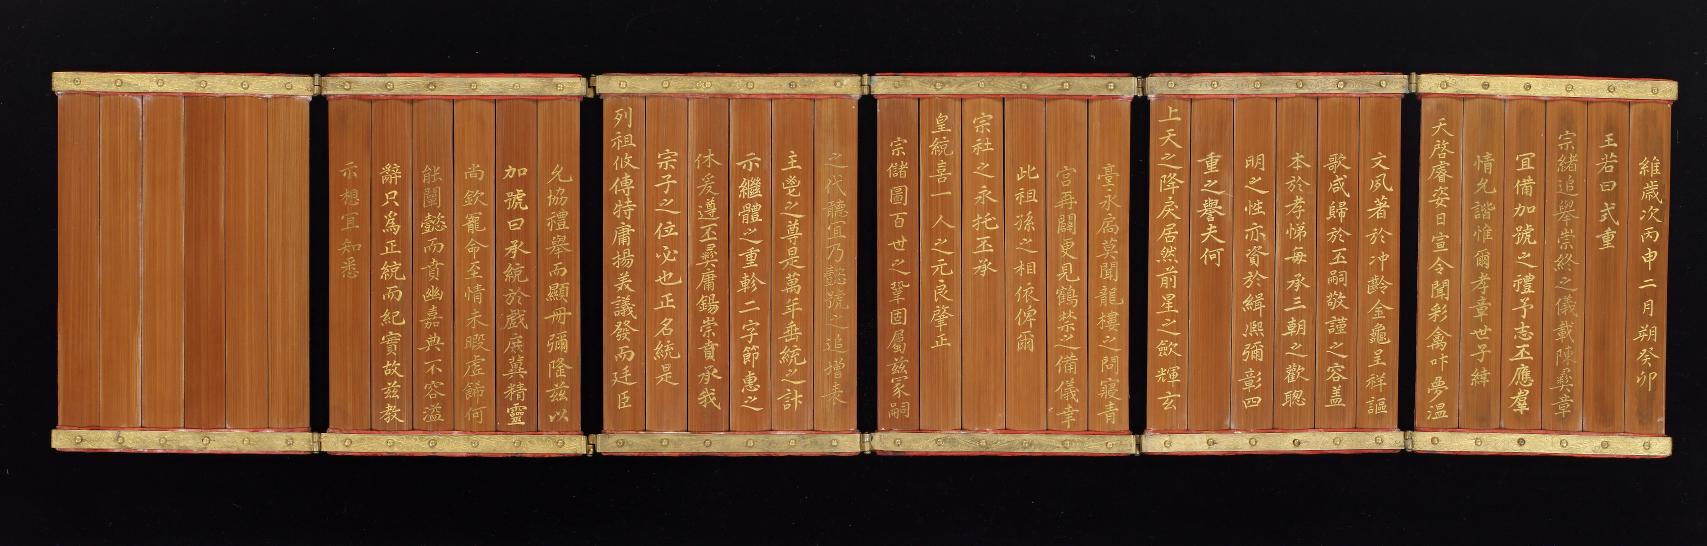 維歲次丙申二月朔癸卯
王若曰式重
宗緒追舉崇終之儀載陳彛章
冝備加號之禮予志丕應羣
情允諧惟爾孝章世子緈
天啓睿姿日宣令聞彩禽叶夢溫
文夙著於冲齡金龜呈祥謳
歌咸歸於丕嗣敬謹之容蓋
本於孝悌每承三朝之歡聰
明之性亦資於緝熈彌彰四
重之譽夫何
上天之降戾居然前星之斂輝玄
臺永扃莫聞龍樓之問寢青
宮再闢更見鶴禁之備儀幸
此祖孫之相依俾爾
宗社之永托丕承
皇統喜一人之元良肇正
宗儲圖百世之鞏固屬玆冢嗣
之代聽冝乃懿號之追增表
主鬯之尊是萬年垂統之計
示繼體之重軫二字節惠之
休爰遵丕彛庸錫崇賁承我
宗子之位必也正名統是
列祖攸傳特庸揚美議發而廷臣
允協禮舉而顯冊彌隆玆以
加號曰承統於戲庶冀精靈
尚欽寵命至情未暇虛餙何
能闡懿而賁幽嘉典不容濫
辭只爲正統而紀實故玆教
示想冝知悉